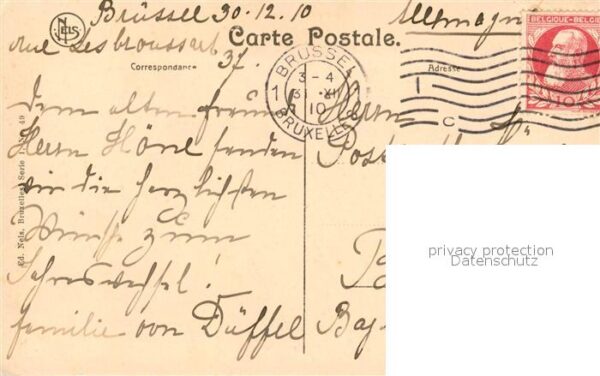 Brüssel 30.12.10
rue Lesbroussart
37.
Allemagne
NELS
Carte Postale.
Correspondance
Adresse
BRÜSSEL
3-4
31 XI
10
BRUXELLES
1
C
BELGIQUE-BELGIË
10
Dem alten Freund
Herrn Höne senden
wir die herzlichsten
Wünsche zum
Jahreswechsel!
Familie von Düffel
Herrn
Bay-
Ed. Nels, Bruxelles Serie
49
privacy protection
Datenschutz